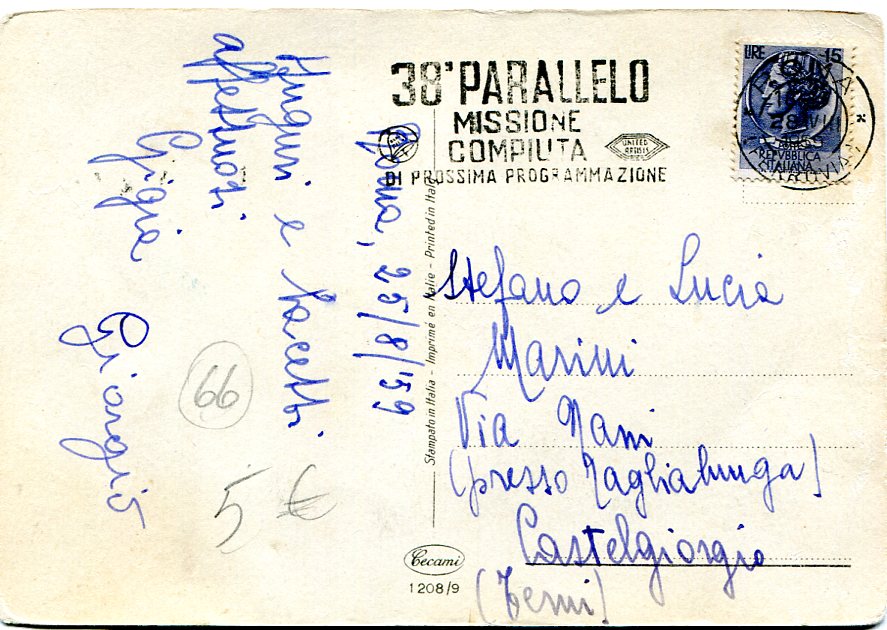 Roma, 25/8/'59
Auguri e bacetti
affettuosi
Gigia
Giorgio
66
5 €
38° PARALLELO
MISSIONE
COMPIUTA
UNITED
ARTISTS
DI PROSSIMA PROGRAMMAZIONE
LIRE 15
ROMA
28 VIII
REPVBBLICA
ITALIANA
FERROVIA
Stampato in Italia - Imprimé en Italie - Printed in Italy
Stefano e Lucia
Marini
Via Nani
(presso Tagliabunga)
Castelgiorgio
(Terni)
Cecami
1208/9